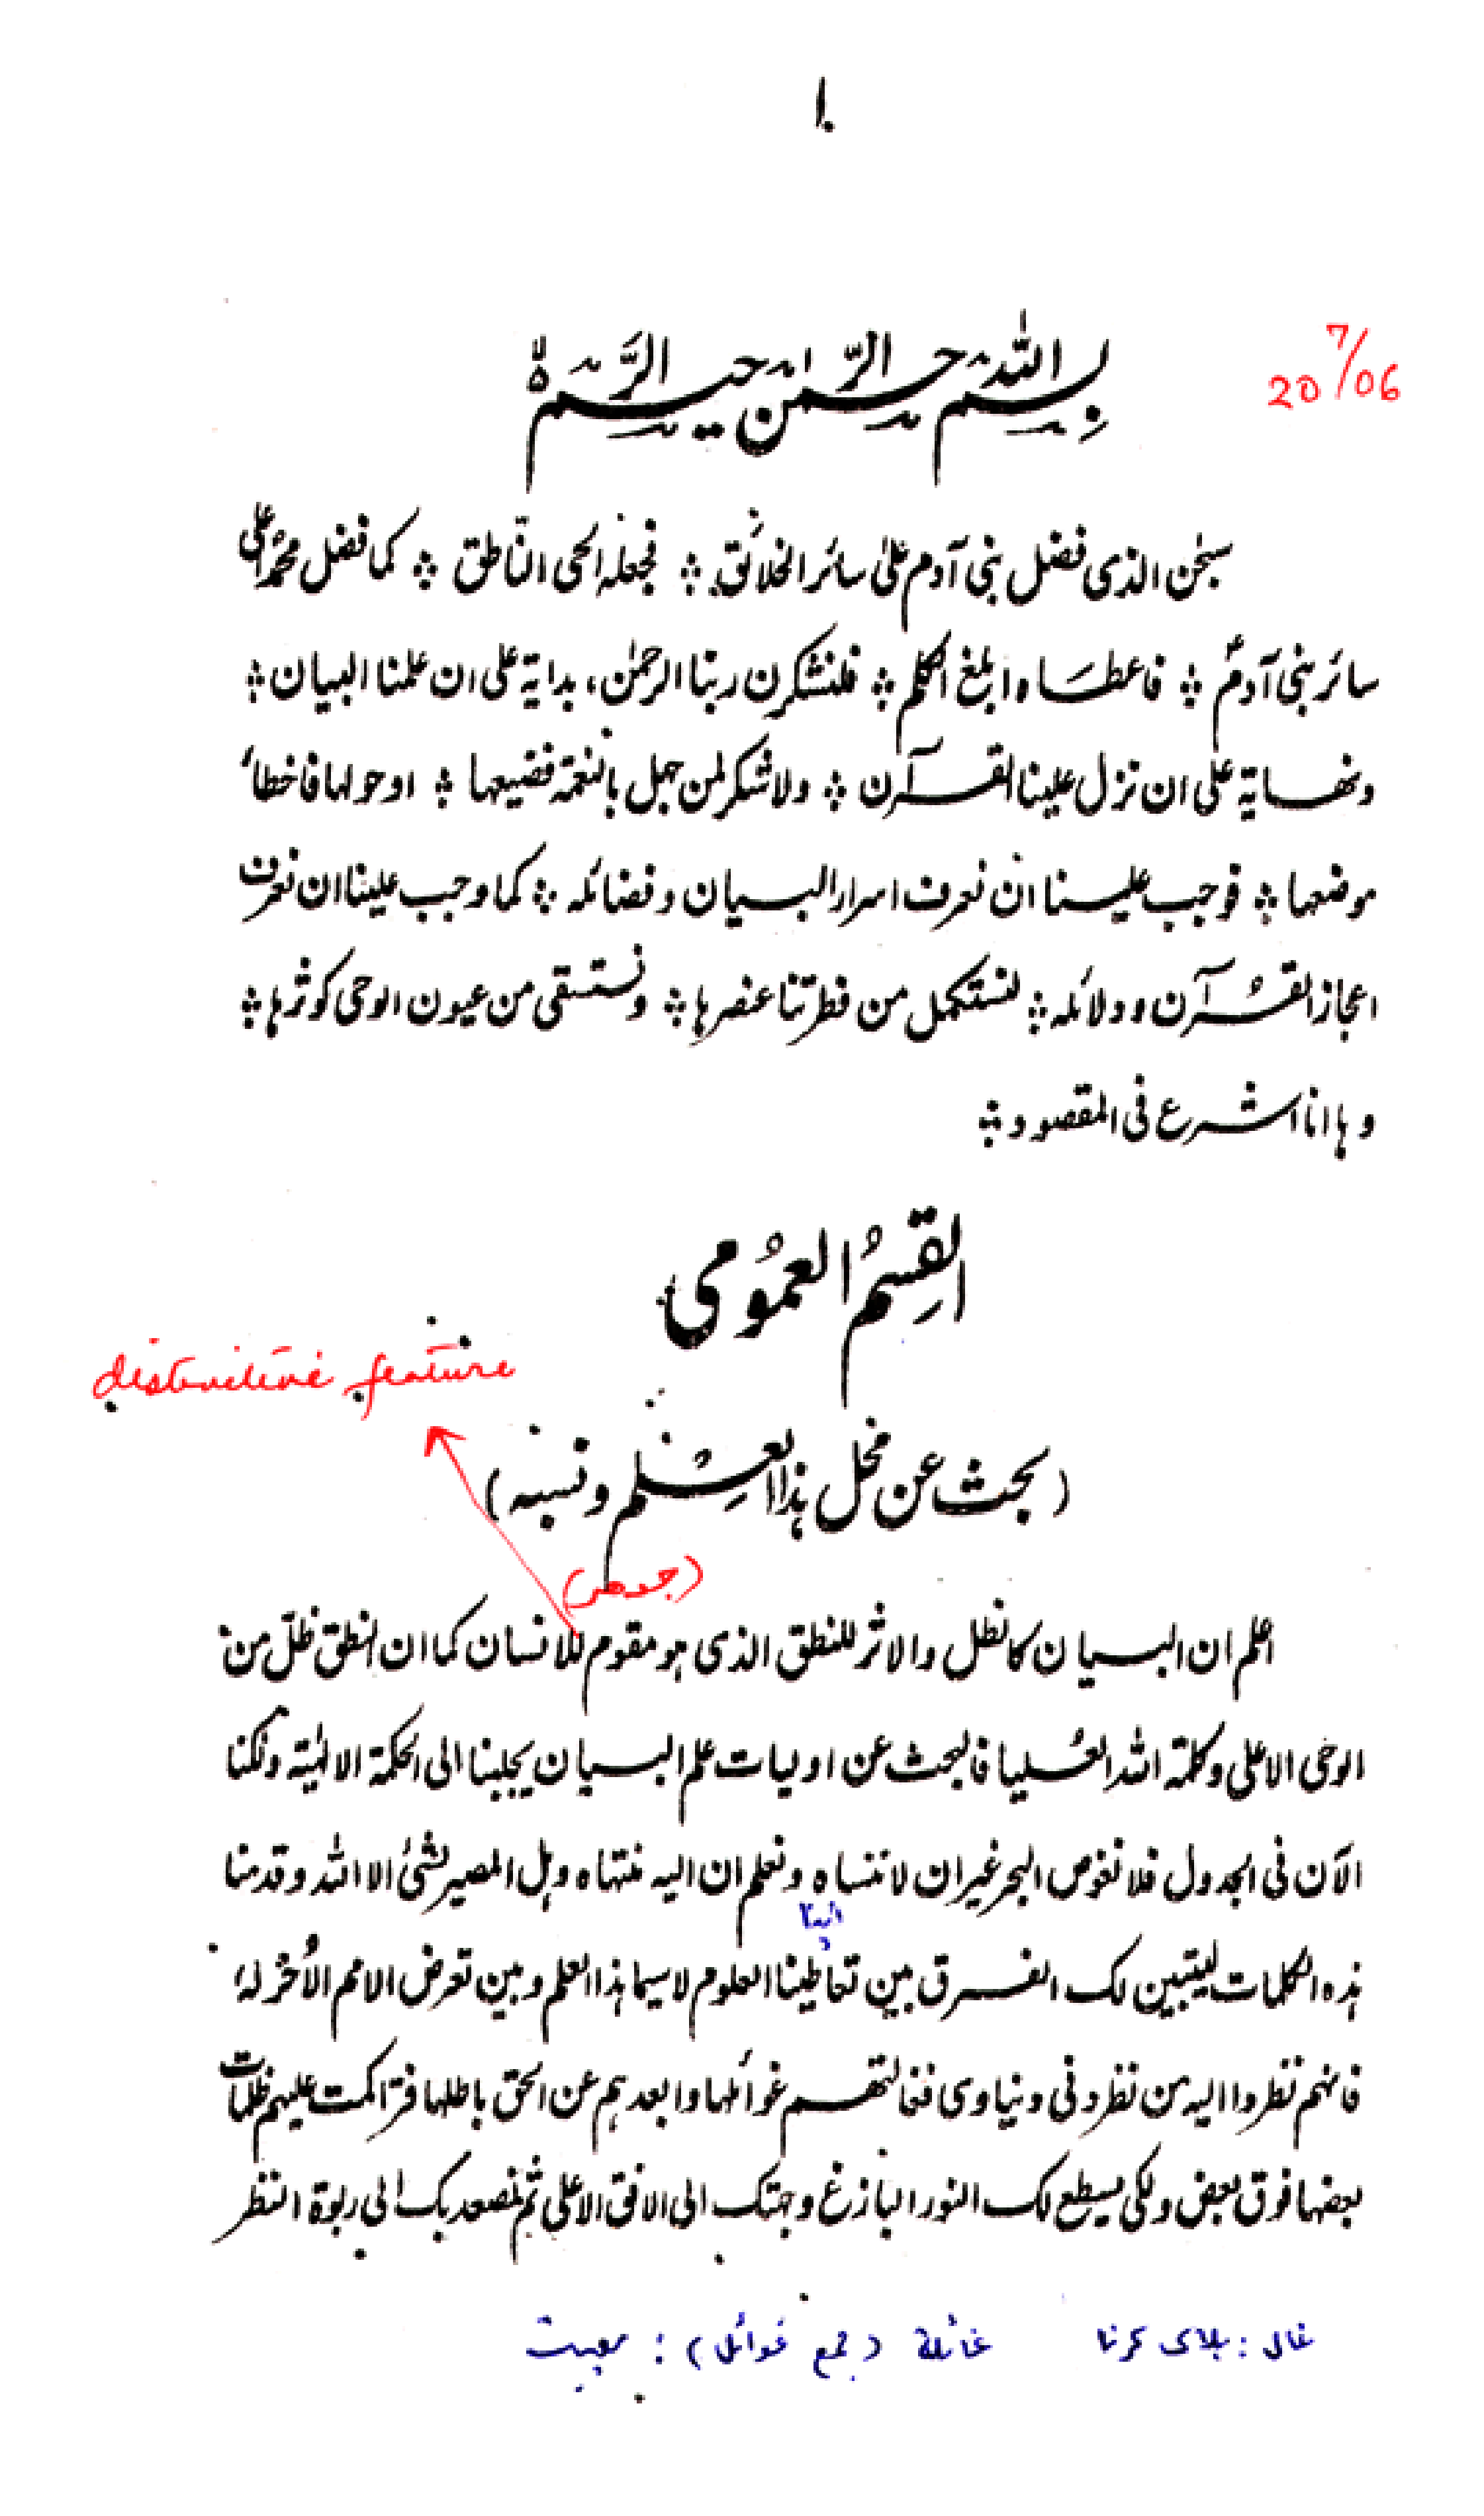 ١٠
بسم الله الرحمن الرحيم
7/06
20
سبحٰن الذى فضل بنى آدم علىٰ سائر الخلائق ؞ فجعله الحى النّاطق ؞ كما فضل محمدٌ على
سائر بنى آدم ؞ فاعطاه ابلغ الكلم ؞ فلنشكرن ربنا الرحمٰن، بداية على ان علمنا البيان ؞
ونهاية على ان نزل علينا القرآن ؞ ولا شكر لمن جهل بالنعمة فضيعها ؞ او حولها فاخطأ
موضعها ؞ فوجب علينا ان نعرف اسرار البيان وفضائله ؞ كما وجب علينا ان نعرف
اعجاز القرآن ودلائله ؞ لنستكمل من فطرتنا عنصرها ؞ ونستسقى من عيون الوحى كوثرها ؞
وها انا اشرع فى المقصود ؞
القِسمُ العمُومى
distinctive feature
(بحث عن محل هذا العِلم ونسبته)
(جوهر)
اعلم ان البيان كالظل والاثر للنطق الذى هو مقوم للانسان كما ان النطق ظلّ من
الوحى الاعلى وكلمة الله العُليا فالبحث عن اوليات علم البيان يجلبنا الى الحكمة الالٰهية ولكنا
الآن فى الجدول فلا نغوص البحر غير ان لا ننساه ونعلم ان اليه منتهاه وهل المصير لشئ الا الله وقدمنا
هذه الكلمات ليتبين لك الفرق بين تعاطينا العلوم لا سيما هذا العلم وبين تعرض الامم الأخر له،
فانهم نظروا اليه من نظر دنى دنياوى فغالتهم غوائلها وابعدهم عن الحق باطلها فتراكمت عليهم ظلمات
بعضها فوق بعض ولكى يسطع لك النور البازغ وجهتك الى الافق الاعلى ثم نصعد بك الى ربوة النظر
غال : ہلاک کرنا غائلة (جمع غوائل) : مصیبت